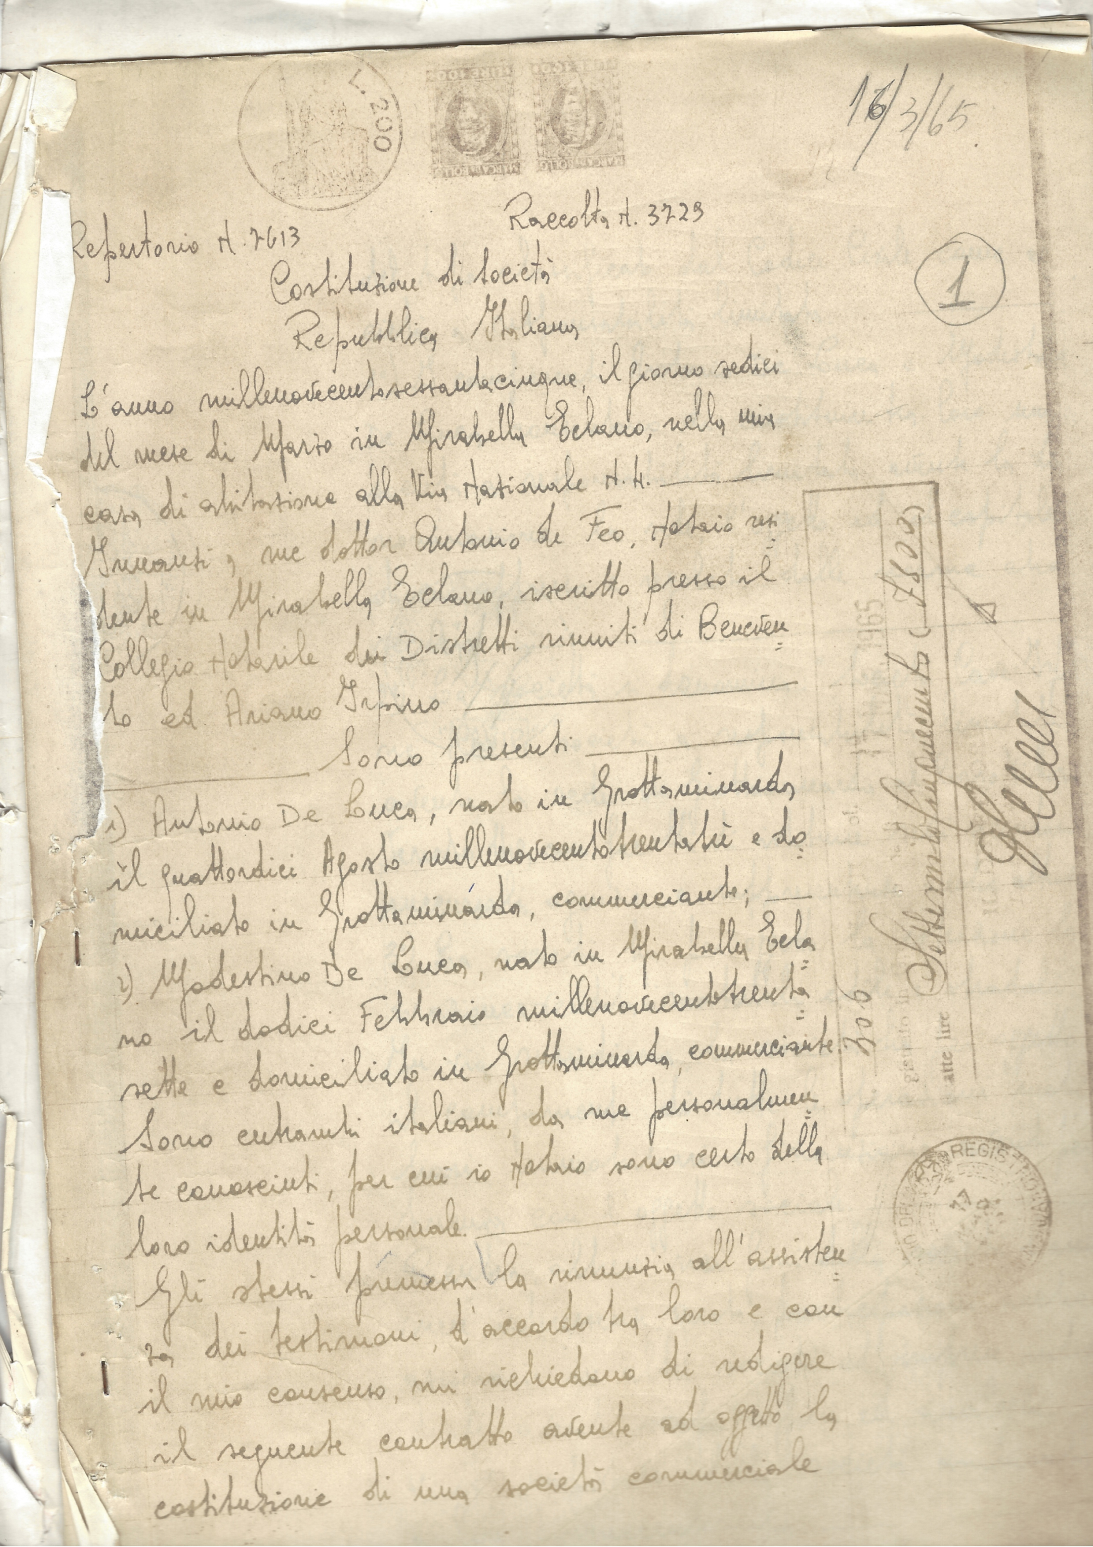 L. 200
LIRE 100
LIRE 100
MARCA DA BOLLO
MARCA DA BOLLO
16/3/65
Repertorio N. 7613
Raccolta N. 3729
Costituzione di Società
1
Repubblica Italiana
L'anno millenovecentosessantacinque, il giorno sedici
del mese di Marzo in Mirabella Eclano, nella mia
casa di abitazione alla Via Nazionale N. 4.
Innanzi a me dottor Antonio de Feo, Notaio resi=
dente in Mirabella Eclano, iscritto presso il
Collegio Notarile dei Distretti riuniti di Beneven=
to ed Ariano Irpino
Sono presenti
1) Antonio De Luca, nato in Grottaminarda
il quattordici Agosto millenovecentotrentatrè e do=
miciliato in Grottaminarda, commerciante;
2) Modestino De Luca, nato in Mirabella Ecla=
no il dodici Febbraio millenovecentotrenta=
sette e domiciliato in Grottaminarda, commerciante.
Sono entrambi italiani, da me personalmen=
te conosciuti, per cui io Notaio sono certo della
loro identità personale.
Gli stessi premessa la rinunzia all'assisten=
za dei testimoni, d'accordo tra loro e con
il mio consenso, mi richiedono di redigere
il seguente contratto avente ad oggetto la
costituzione di una società commerciale
17 1965
306
atte lire Settemilacinquecento (7500)
REGISTRO